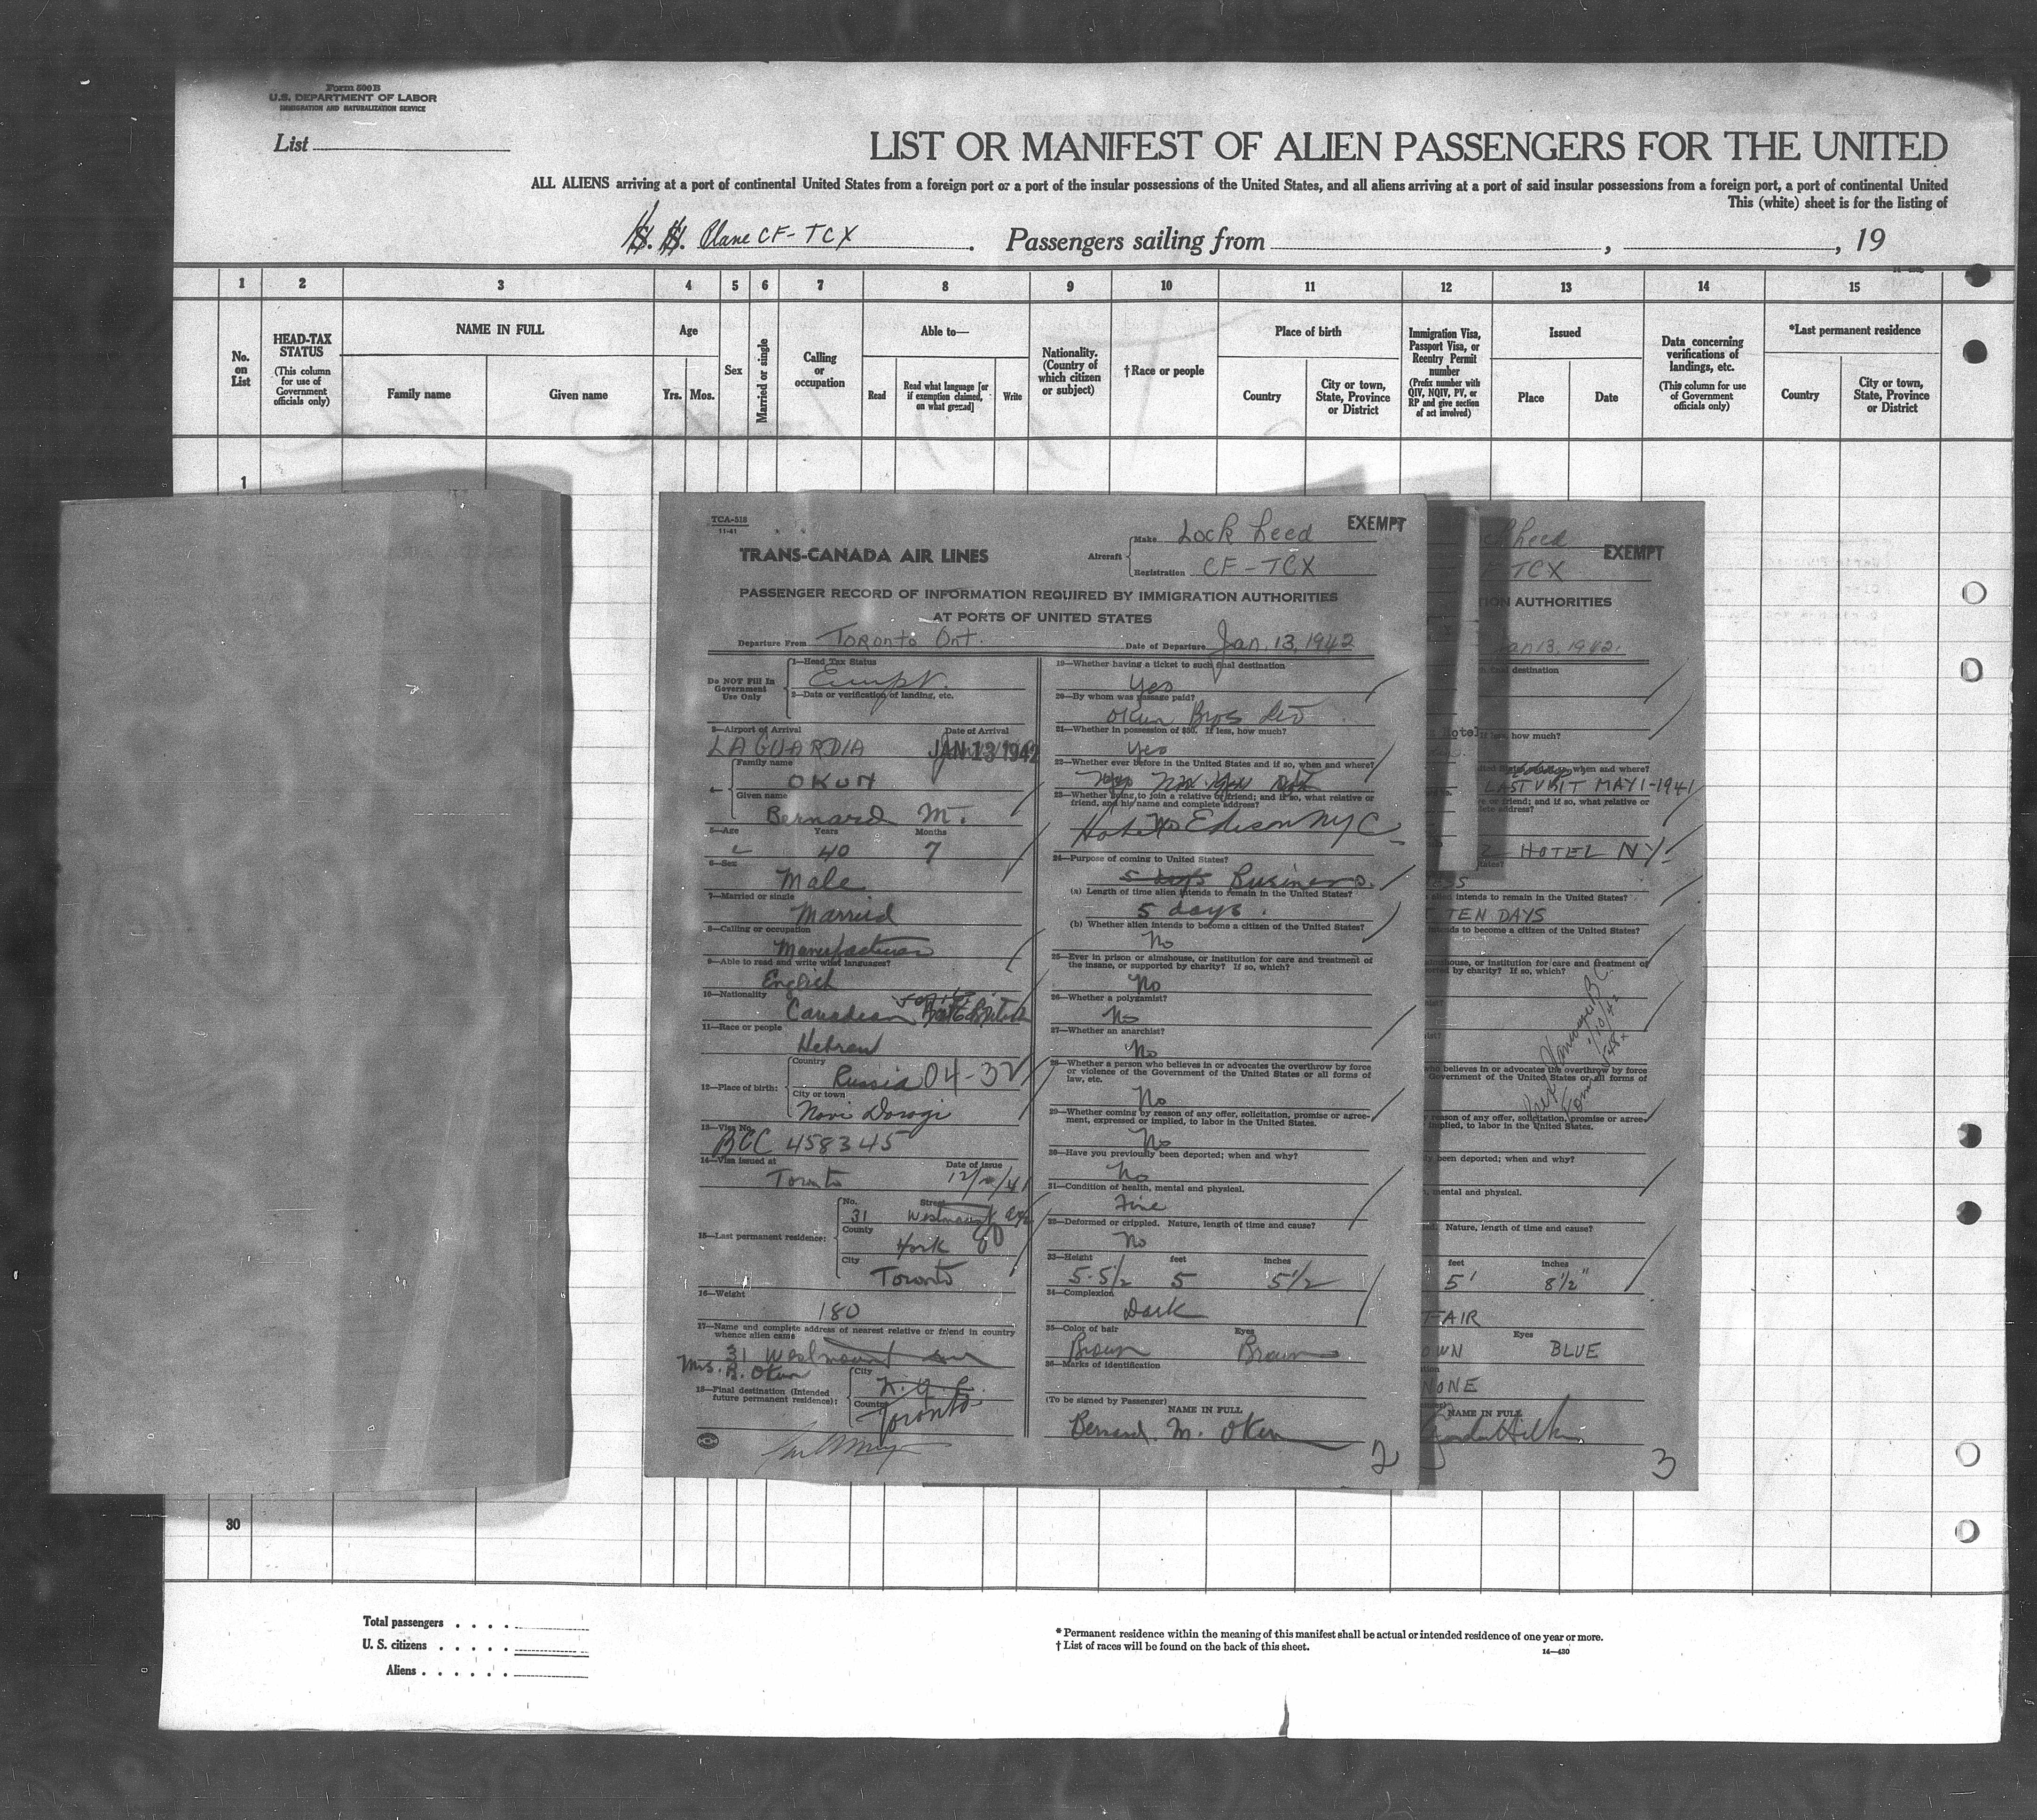 Form 500 B
U.S. DEPARTMENT OF LABOR
IMMIGRATION AND NATURALIZATION SERVICE
List
LIST OR MANIFEST OF ALIEN PASSENGERS FOR THE UNITED
ALL ALIENS arriving at a port of continental United States from a foreign port or a port of the insular possessions of the United States, and all aliens arriving at a port of said insular possessions from a foreign port, a port of continental United
This (white) sheet is for the listing of
S. S. Plane CF-TCX . Passengers sailing from , , 19
1 2 3 4 5 6 7 8 9 10 11 12 13 14 15
No. on List
HEAD-TAX STATUS
(This column for use of Government officials only)
NAME IN FULL
Family name
Given name
Age
Yrs. Mos.
Sex
Married or single
Calling or occupation
Able to—
Read
Read what language [or if exemption claimed, on what ground]
Write
Nationality. (Country of which citizen or subject)
†Race or people
Place of birth
Country
City or town, State, Province or District
Immigration Visa, Passport Visa, or Reentry Permit number
(Prefix number with QIV, NQIV, PV, or RP and give section of act involved)
Issued
Place
Date
Data concerning verifications of landings, etc.
(This column for use of Government officials only)
*Last permanent residence
Country
City or town, State, Province or District
1
TCA-518
11-41
TRANS-CANADA AIR LINES
Aircraft
Make Lock heed
Registration CF-TCX
EXEMPT
PASSENGER RECORD OF INFORMATION REQUIRED BY IMMIGRATION AUTHORITIES
AT PORTS OF UNITED STATES
Departure From Toronto Ont.
Date of Departure Jan. 13, 1942
Do NOT Fill In Government Use Only
1—Head Tax Status
2—Date or verification of landing, etc.
3—Airport of Arrival
Date of Arrival
LA GUARDIA
JAN 13 1942
4—
Family name
OKUN
Given name
Bernard M.
5—Age Years Months
40 7
6—Sex
Male
7—Married or single
Married
8—Calling or occupation
Manufacturer
9—Able to read and write what languages?
English
10—Nationality
Canadian
11—Race or people
Hebrew
12—Place of birth:
Country
Russia 04-32
City or town
Novi Dorogi
13—Visa No.
BCC 458345
14—Visa issued at
Date of issue
Toronto
15—Last permanent residence:
No. Street
31 Westmount Ave
County
York
City
Toronto
16—Weight
180
17—Name and complete address of nearest relative or friend in country whence alien came
31 Westmount
Mrs. B. Okun
18—Final destination (Intended future permanent residence):
City
Country
Toronto
19—Whether having a ticket to such final destination
Yes
20—By whom was passage paid?
Okun Bros Ltd
21—Whether in possession of $50. If less, how much?
Yes
22—Whether ever before in the United States and if so, when and where?
23—Whether going to join a relative or friend; and if so, what relative or friend, and his name and complete address?
Hotel Edison NYC
24—Purpose of coming to United States?
Business.
(a) Length of time alien intends to remain in the United States?
5 days.
(b) Whether alien intends to become a citizen of the United States?
No
25—Ever in prison or almshouse, or institution for care and treatment of the insane, or supported by charity? If so, which?
No
26—Whether a polygamist?
No
27—Whether an anarchist?
No
28—Whether a person who believes in or advocates the overthrow by force or violence of the Government of the United States or all forms of law, etc.
No
29—Whether coming by reason of any offer, solicitation, promise or agreement, expressed or implied, to labor in the United States.
No
30—Have you previously been deported; when and why?
No
31—Condition of health, mental and physical.
Fine
32—Deformed or crippled. Nature, length of time and cause?
No
33—Height feet inches
5-5 1/2 5 5 1/2
34—Complexion
Dark
35—Color of hair Eyes
Brown Brown
36—Marks of identification
(To be signed by Passenger)
NAME IN FULL
Bernard. M. Okun
2
heed
EXEMPT
TCX
ION AUTHORITIES
Jan 13, 1942.
destination
how much?
when and where?
LAST VISIT MAY 1-1941
or friend; and if so, what relative or
HOTEL NY.
intends to remain in the United States?
TEN DAYS
to become a citizen of the United States?
or institution for care and treatment of
by charity? If so, which?
believes in or advocates the overthrow by force
Government of the United States or all forms of
reason of any offer, solicitation, promise or agree-
implied, to labor in the United States.
been deported; when and why?
mental and physical.
Nature, length of time and cause?
feet inches
5' 8 1/2"
FAIR
Eyes
OWN BLUE
NONE
NAME IN FULL
3
30
Total passengers . . . .
U. S. citizens . . . . .
Aliens . . . . . .
* Permanent residence within the meaning of this manifest shall be actual or intended residence of one year or more.
† List of races will be found on the back of this sheet.
14—430